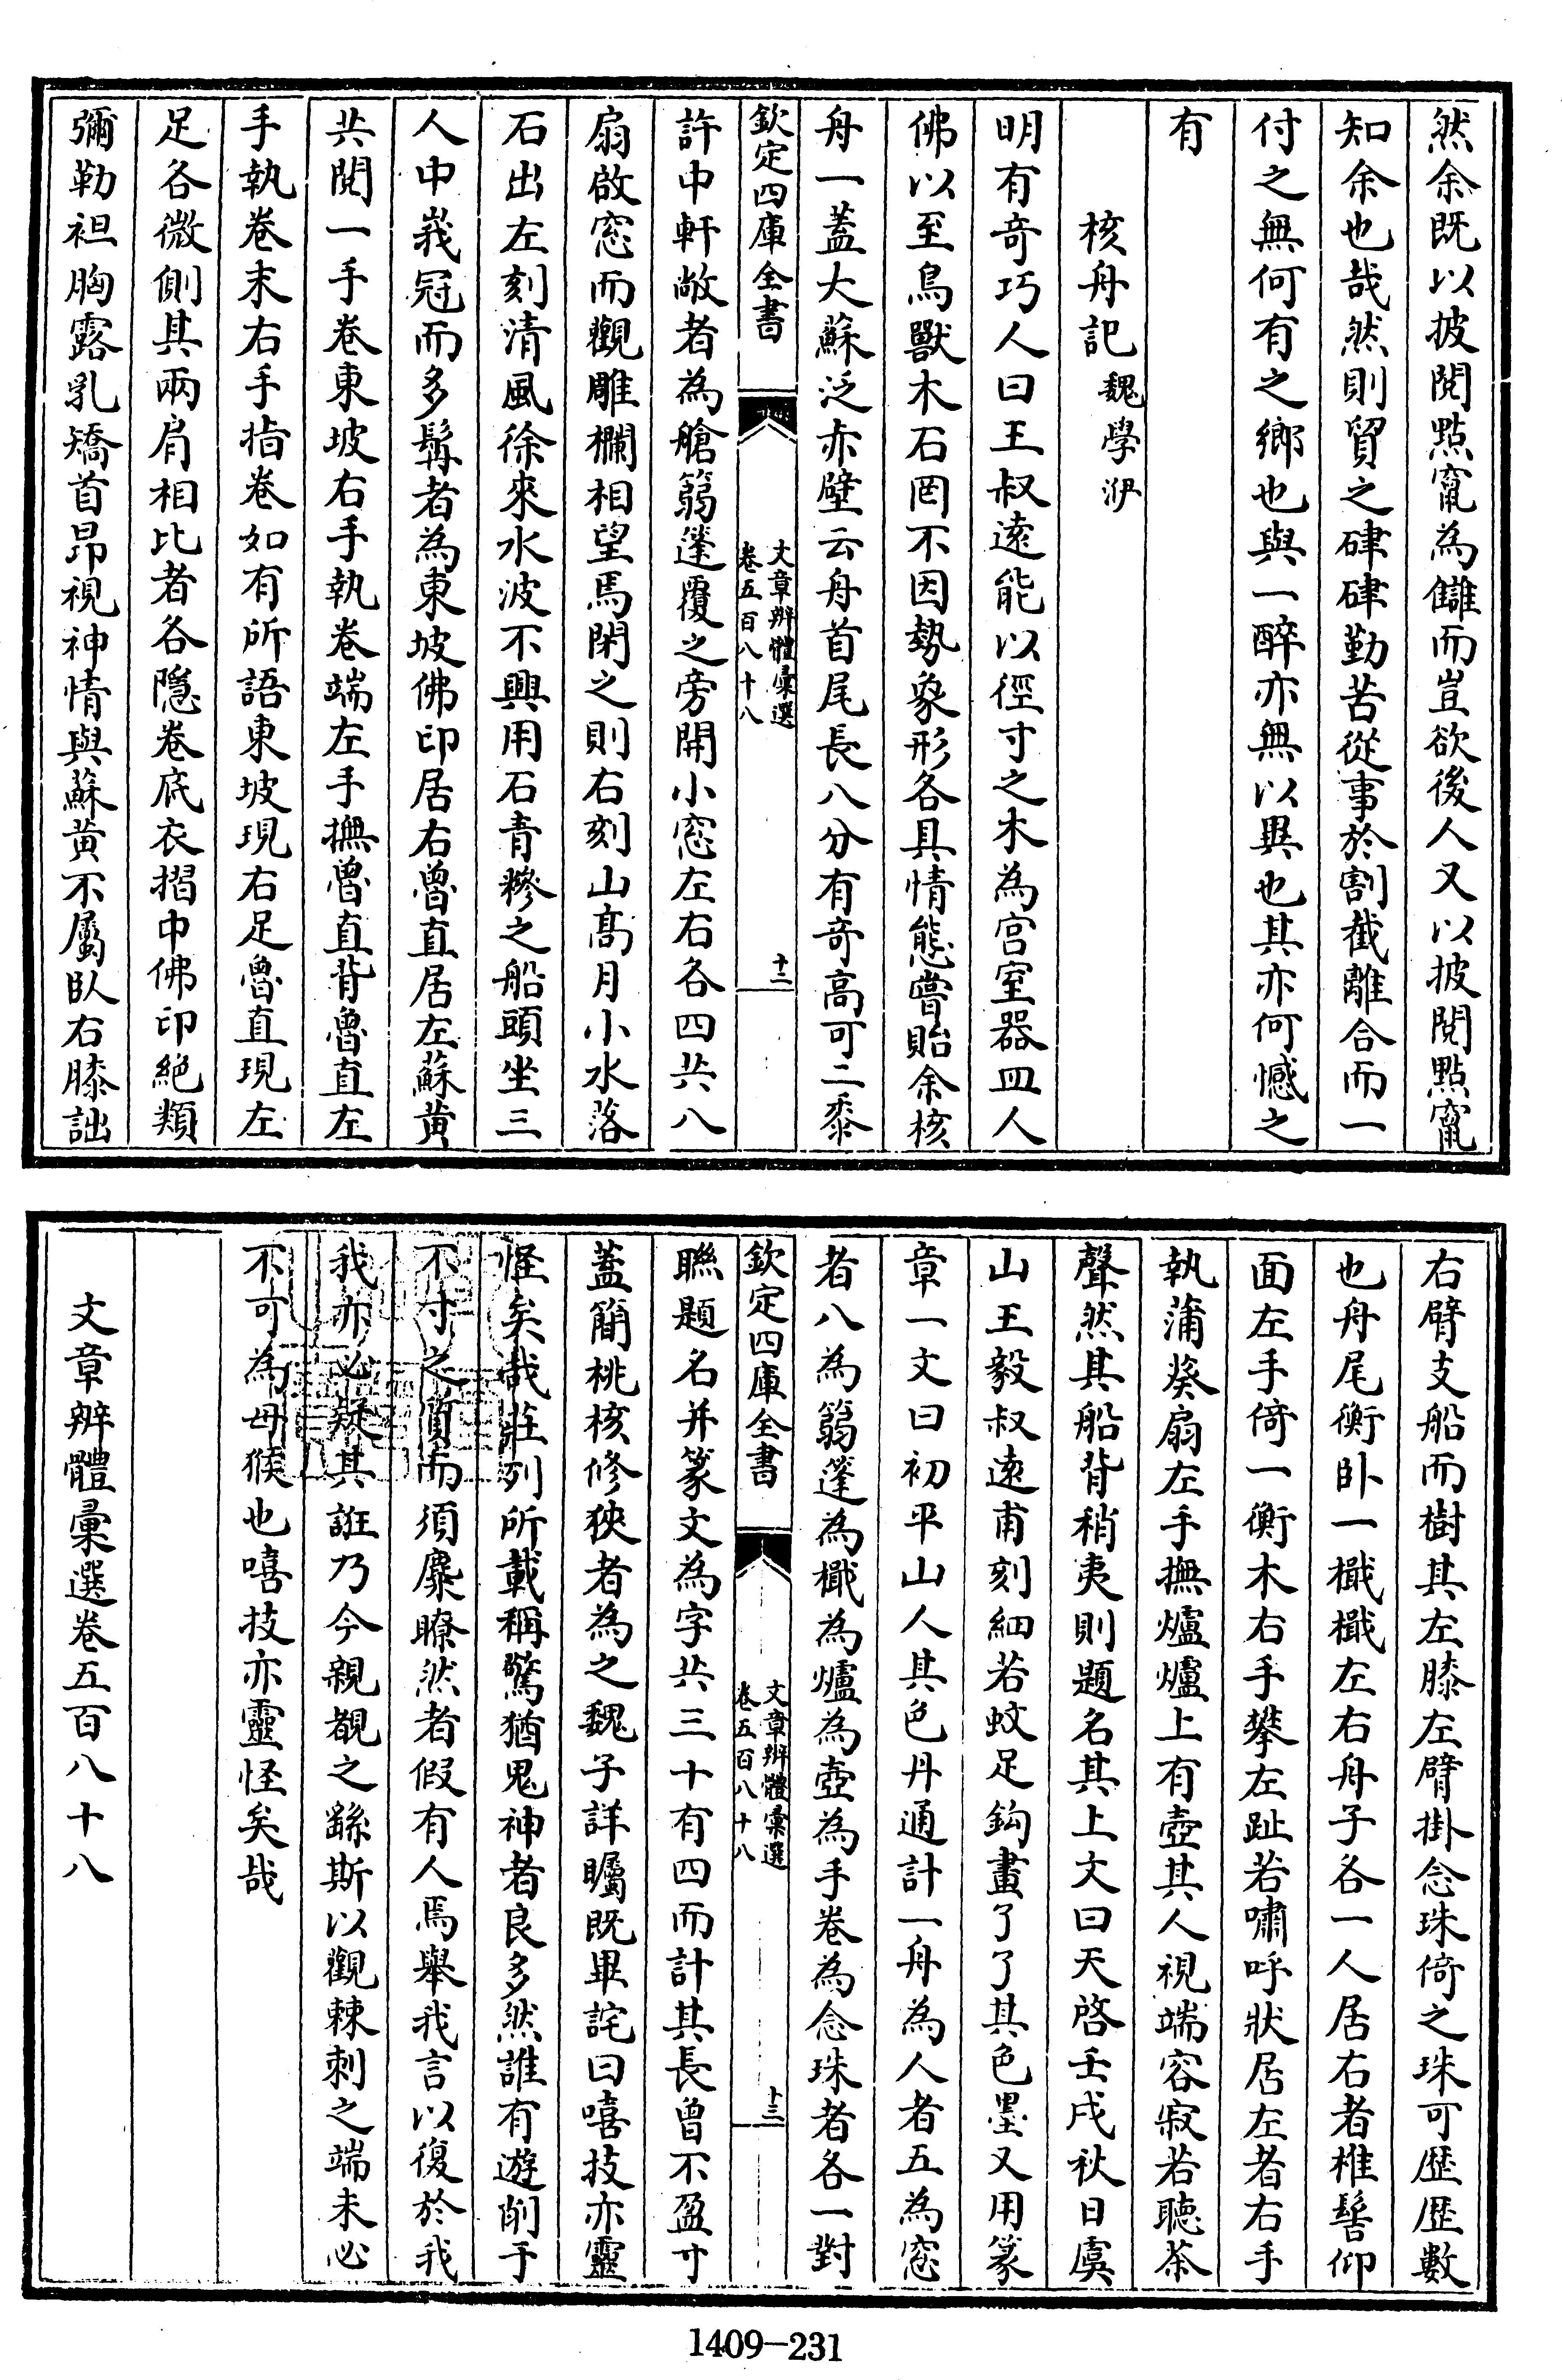 然余既以披閱點竄為讎而豈欲後人又以披閱點竄
知余也哉然則貿之硉硉勤苦從事於割截離合而一
付之無何有之鄉也與一醉亦無以異也其亦何憾之
有
核舟記魏學洢
明有奇巧人曰王叔遠能以徑寸之木為宮室器皿人
佛以至鳥獸木石罔不因勢象形各具情態嘗貽余核
舟一蓋大蘇泛赤壁云舟首尾長八分有奇高可二黍
欽定四庫全書
文章辨體彙選
卷五百八十八
十二
許中軒敞者為艙篛篷覆之旁開小窓左右各四共八
扇啟窓而觀雕欄相望焉閉之則右刻山髙月小水落
石出左刻清風徐來水波不興用石青糝之船頭坐三
人中峩冠而多髯者為東坡佛印居右魯直居左蘇黄
共閱一手卷東坡右手執卷端左手撫魯直背魯直左
手執卷末右手指卷如有所語東坡現右足魯直現左
足各微側其兩肩相比者各隱卷底衣摺中佛印絶類
彌勒袒胸露乳矯首昂視神情與蘇黄不屬臥右膝詘
右臂支船而樹其左膝左臂掛念珠倚之珠可歴歴數
也舟尾衡卧一檝檝左右舟子各一人居右者椎髻仰
面左手倚一衡木右手攀左趾若嘯呼狀居左者右手
執蒲葵扇左手撫爐爐上有壺其人視端容寂若聽茶
聲然其船背稍夷則題名其上文曰天啓壬戌秋日虞
山王毅叔遠甫刻細若蚊足鈎畫了了其色墨又用篆
章一文曰初平山人其色丹通計一舟為人者五為窓
者八為篛篷為檝為爐為壺為手卷為念珠者各一對
欽定四庫全書
文章辨體彙選
卷五百八十八
十三
聮題名并篆文為字共三十有四而計其長曾不盈寸
蓋簡桃核修狹者為之魏子詳矚既畢詫曰嘻技亦靈
怪矣哉莊列所載稱驚猶鬼神者良多然誰有遊削于
不寸之質而須麋瞭然者假有人焉舉我言以復於我
我亦必疑其誑乃今親覩之繇斯以觀棘刺之端未必
不可為母猴也嘻技亦靈怪矣哉
文章辨體彙選卷五百八十八
1409-231